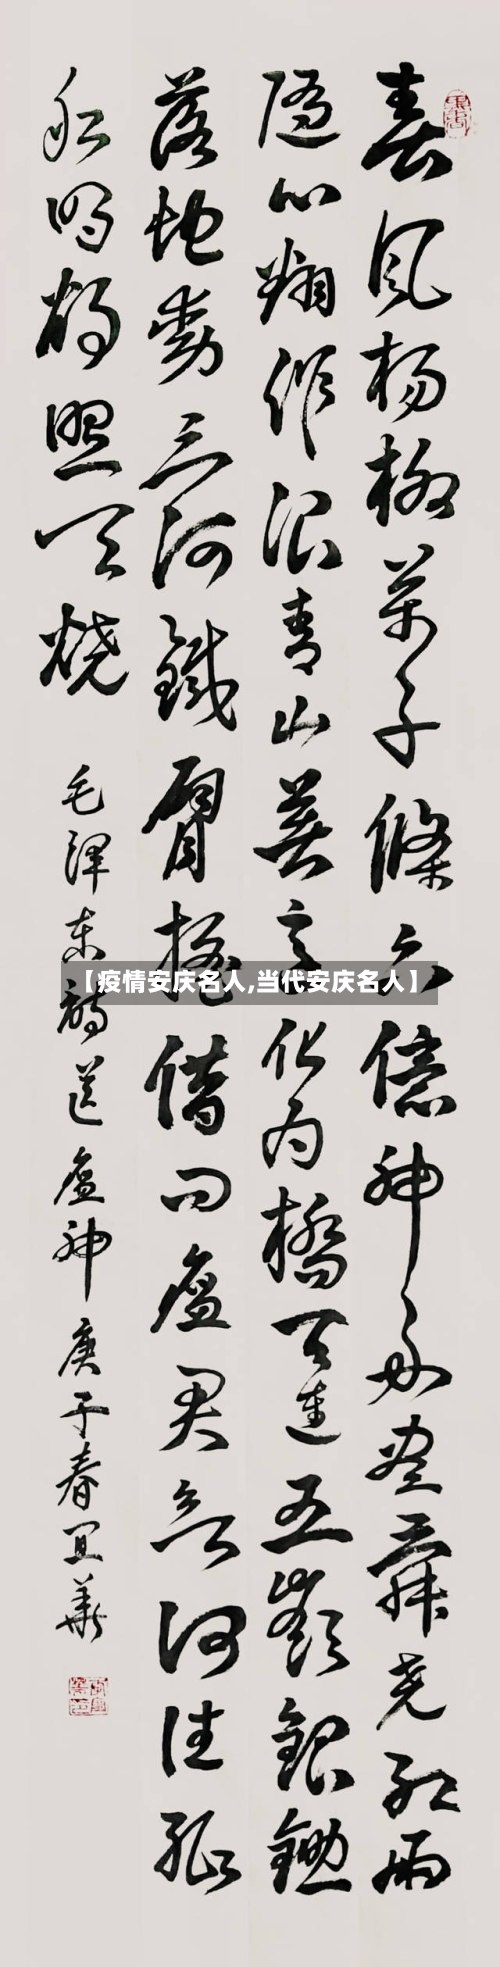 春风杨柳萬千條六億神州尽舜尧红雨
随心翻作浪青山着意化为橋天连五嶺銀鋤
落地動三河鐵臂摇借问瘟君欲何往纸
船明烛照天烧
毛泽东诗送瘟神 庚子春宜华
【疫情安庆名人,当代安庆名人】